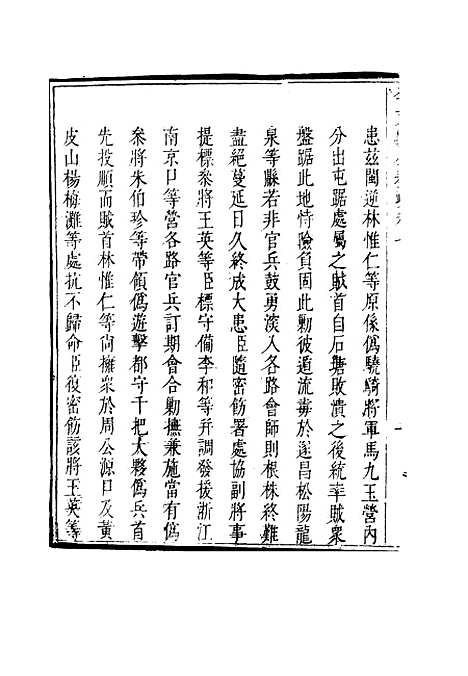 患茲閩逆林惟仁等原係僞驍騎將軍馬九玉營內
分出屯踞處屬之賊首自石塘敗潰之後統率賊衆
盤踞此地恃險負固此勦彼遁流毒於遂昌松陽龍
泉等縣若非官兵鼓勇深入各路會師則根株終難
盡絕蔓延日久終成大患臣隨密飭署處協副將事
提標叅將王英等臣標守備李和等并調發援浙江
南京口等營各路官兵訂期會合勦撫兼施當有僞
叅將朱伯珍等帶領僞遊擊都守千把大夥僞兵首
先投順而賊首林惟仁等尙擁衆於周公源口及黃
皮山楊梅灘等處抗不歸命臣復密飭該將王英等